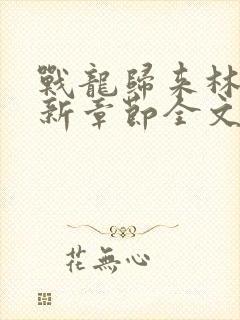 戰龍歸來林
新章節全文
花無心